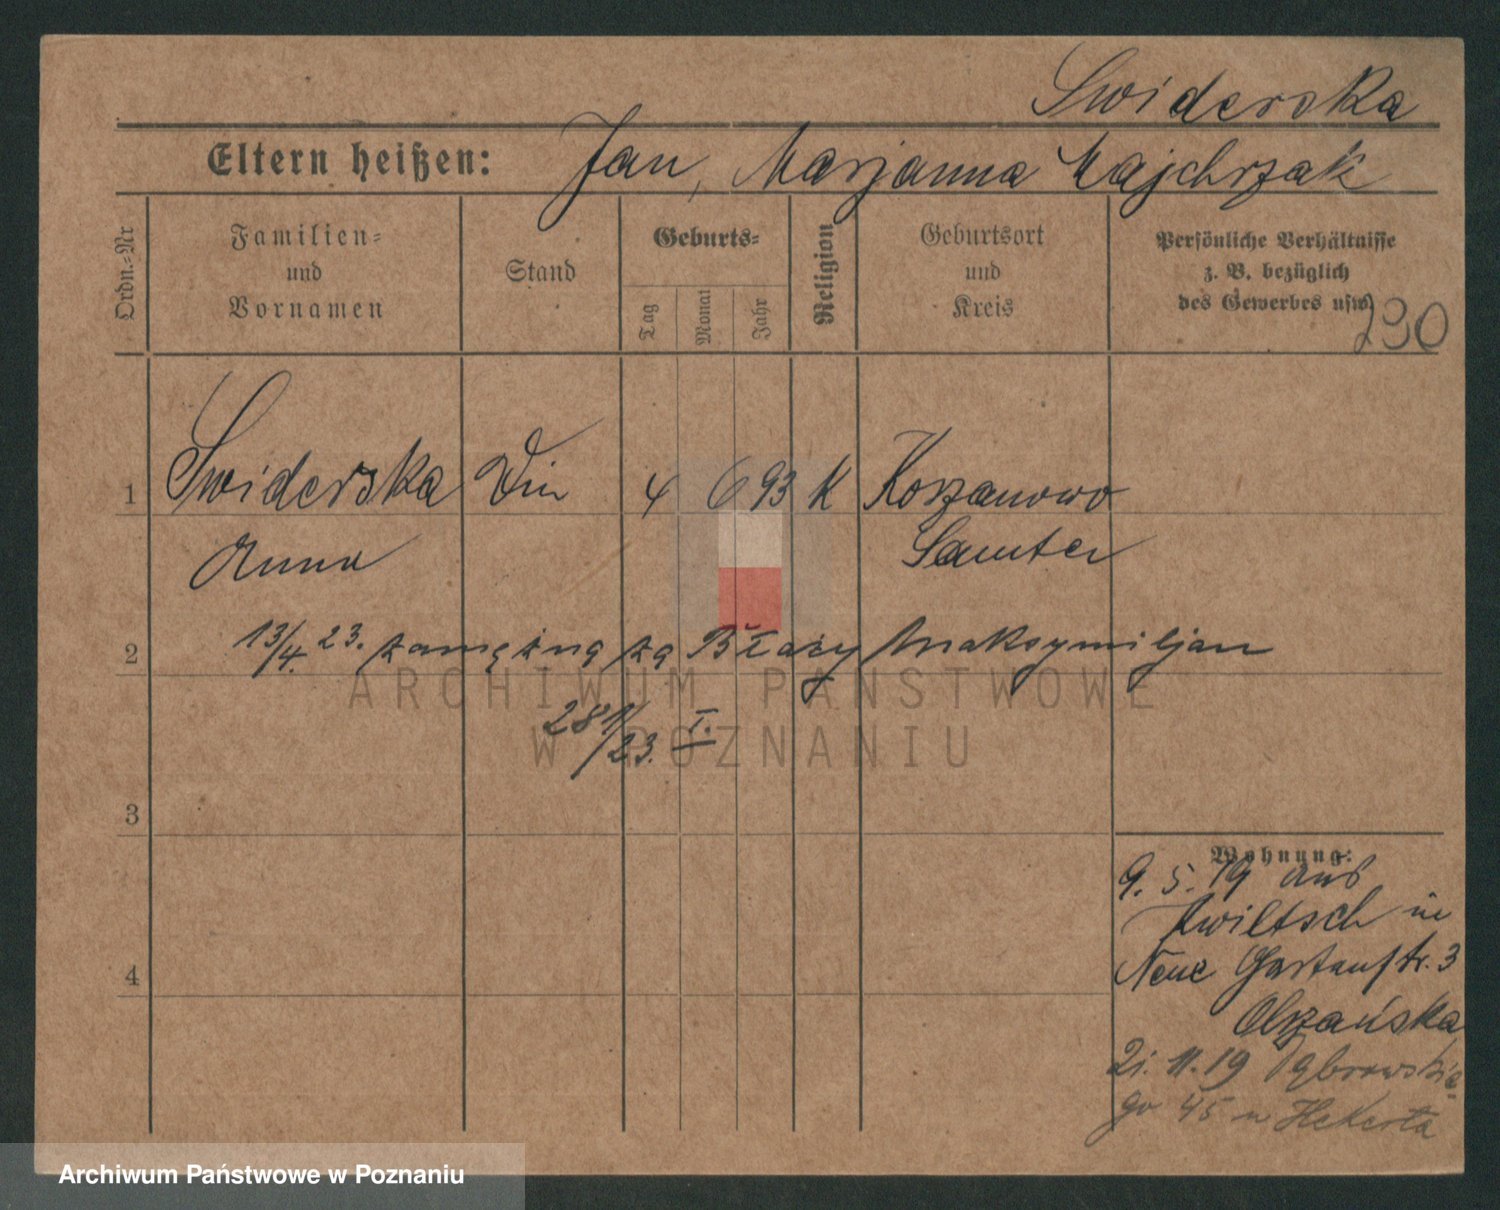 Swiderska
Eltern heißen: Jan, Marjanna Majchrzak
Ordn.-Nr
Familien-
und
Vornamen
Stand
Geburts-
Tag
Monat
Jahr
Religion
Geburtsort
und
Kreis
Persönliche Verhältnisse
z. B. bezüglich
des Gewerbes usw)
290
1 Swiderska 4 6 93 K Korzanowo
Anna Samter
2 13/4. 23. zamężna za Błaży Maksymiljan
281/23. I.
3
Wohnung:
9. 5. 19 aus
Kwiltsch in
4
Neue Gartenstr. 3
Olszańska
21. 11. 19 Dąbrowskie-
go 45 u Hekerta
ARCHIWUM PAŃSTWOWE
W POZNANIU
Archiwum Państwowe w Poznaniu